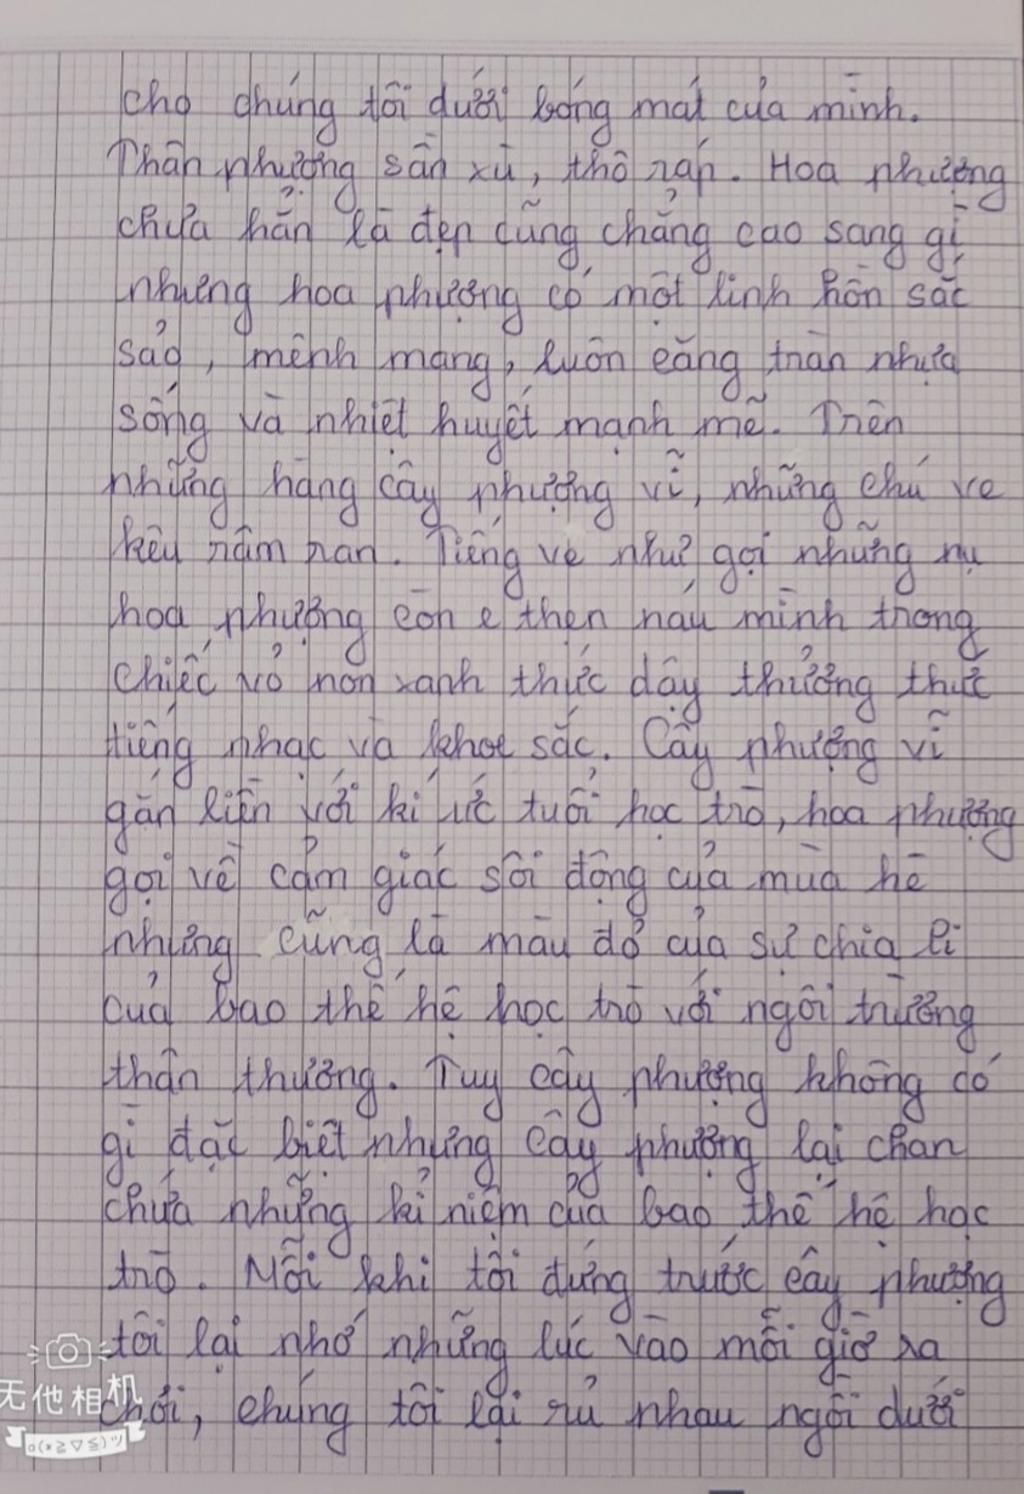 cho chúng tôi dưới bóng mát của mình.
Thân phượng sần xù, thô ráp. Hoa phượng
chưa hẳn là đẹp cũng chẳng cao sang gì
nhưng hoa phượng có một linh hồn sắc
sảo, mênh mang, luôn căng tràn nhựa
sống và nhiệt huyết mạnh mẽ. Trên
những hàng cây phượng vĩ, những chú ve
kêu râm ran. Tiếng ve như gọi những nụ
hoa phượng còn e thẹn náu mình trong
chiếc vỏ non xanh thức dậy thưởng thức
tiếng nhạc và khoe sắc. Cây phượng vĩ
gắn liền với kí ức tuổi học trò, hoa phượng
gọi về cảm giác sôi động của mùa hè
nhưng cũng là màu đỏ của sự chia li
của bao thế hệ học trò với ngôi trường
thân thương. Tuy cây phượng không có
gì đặc biệt nhưng cây phượng lại chan
chứa những kỉ niệm của bao thế hệ học
trò. Mỗi khi tôi đứng trước cây phượng
tôi lại nhớ những lúc vào mỗi giờ ra
chơi, chúng tôi lại rủ nhau ngồi dưới
无他相机
o(≧▽≦)ツ